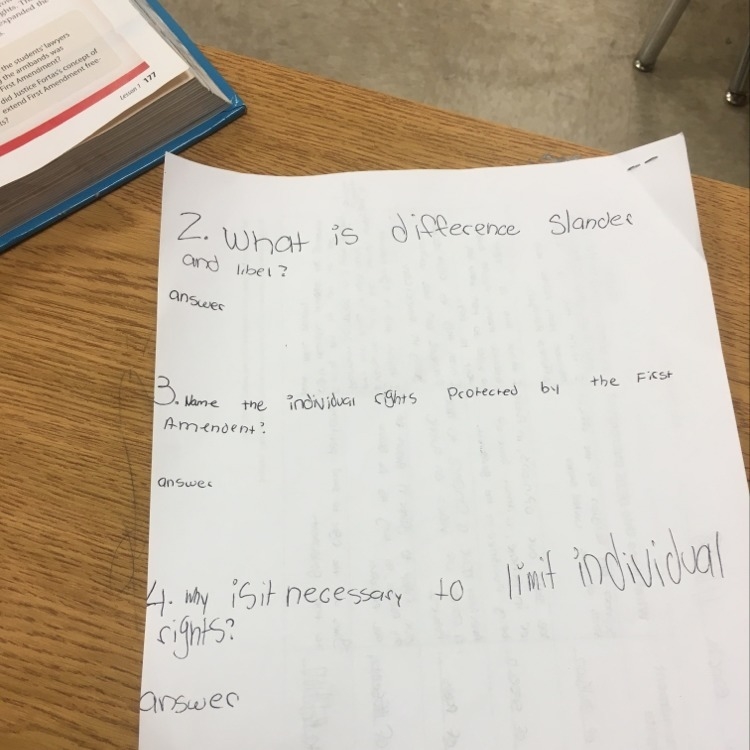 ghts. Th
expanded the
the students' lawyers
the armbands was
First Amendment?
did Justice Fortas's concept of
extend First Amendment free-
ts?
Lesson 1 177
2. What is difference Slander
and libel?
answer
3. Name the individual rghts Protected by the First
Amendent?
answer
4. Why is it necessary to limit individual
rights?
answer